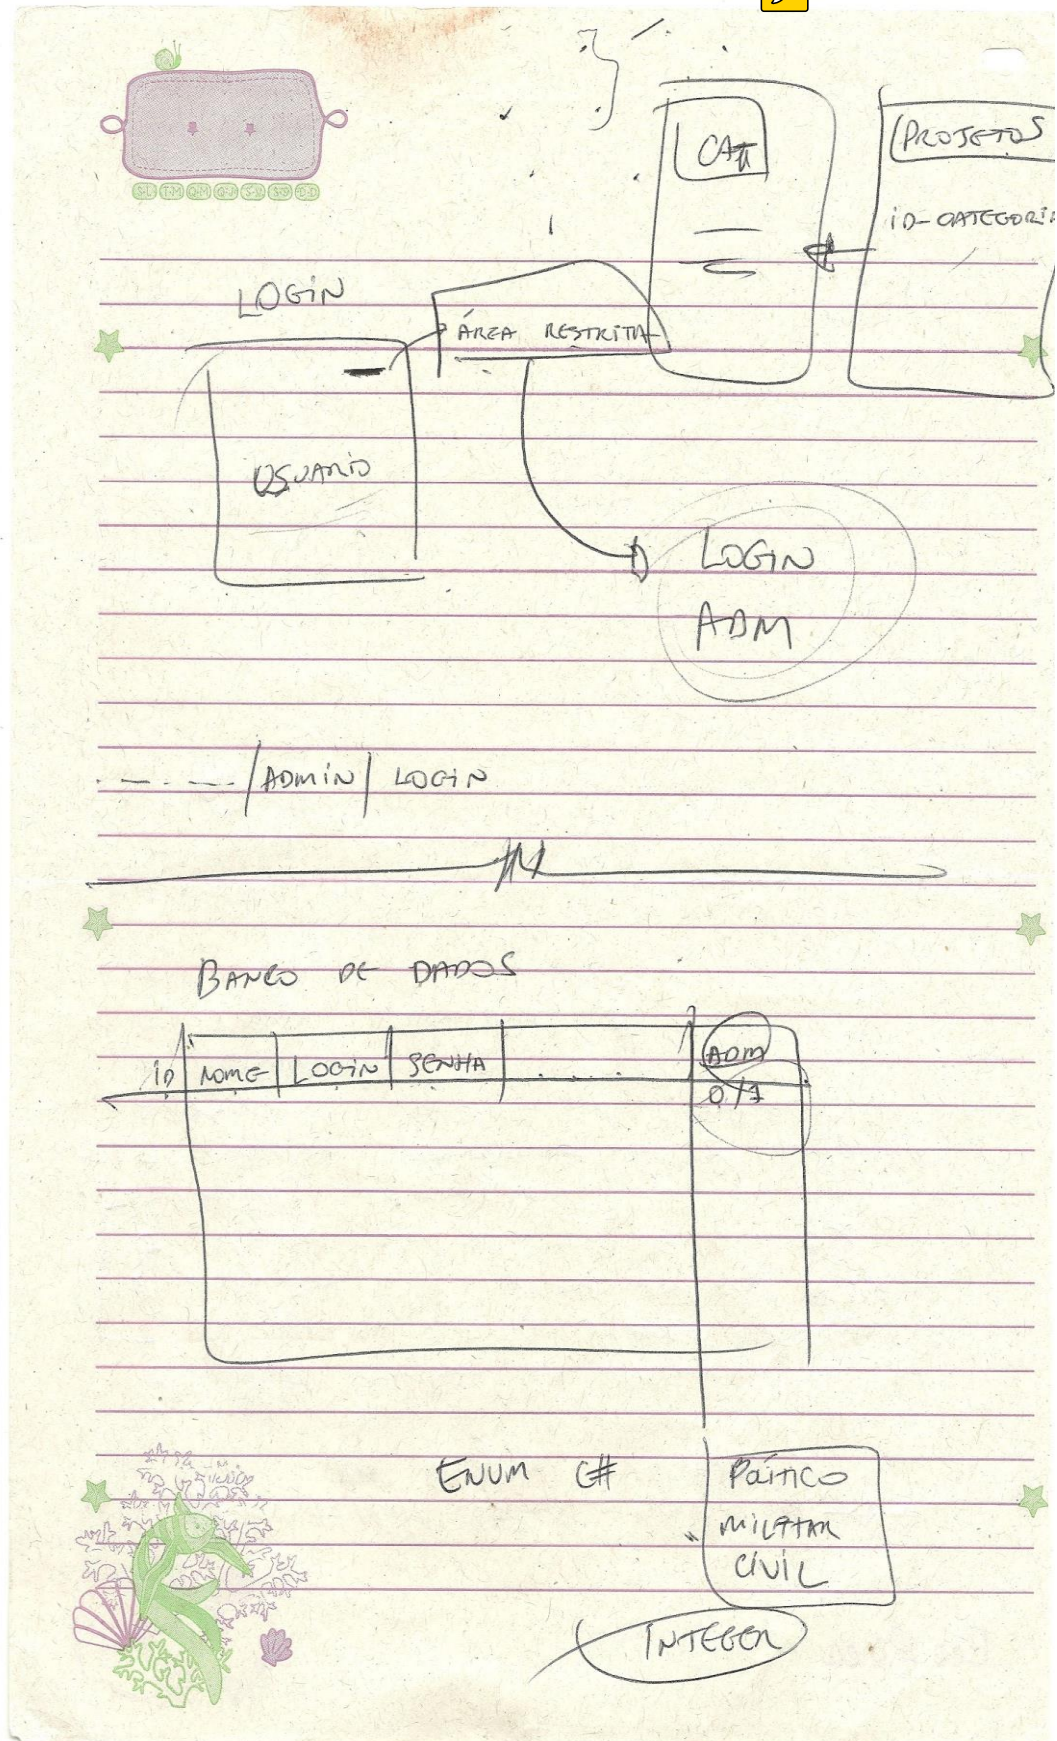 CAT
PROJETOS
ID-CATEGORIA
LOGIN
ÁREA RESTRITA
USUARIO
LOGIN
ADM
/ADMIN/ LOGIN
BANCO DE DADOS
ID NOME LOGIN SENHA ..... ADM
0/1
ENUM C#
POÍTICO
MILITAR
CIVIL
INTEGER